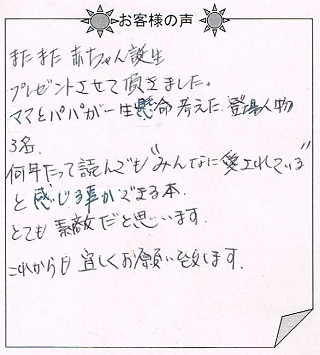 お客様の声
またまた 赤ちゃん誕生
プレゼントさせて頂きました。
ママとパパが一生懸命考えた 登場人物
3名.
何年たって読んでも"みんなに愛されている"
と感じる事ができる本.
とても素敵だと思います.
これからも 宜しくお願い致します.